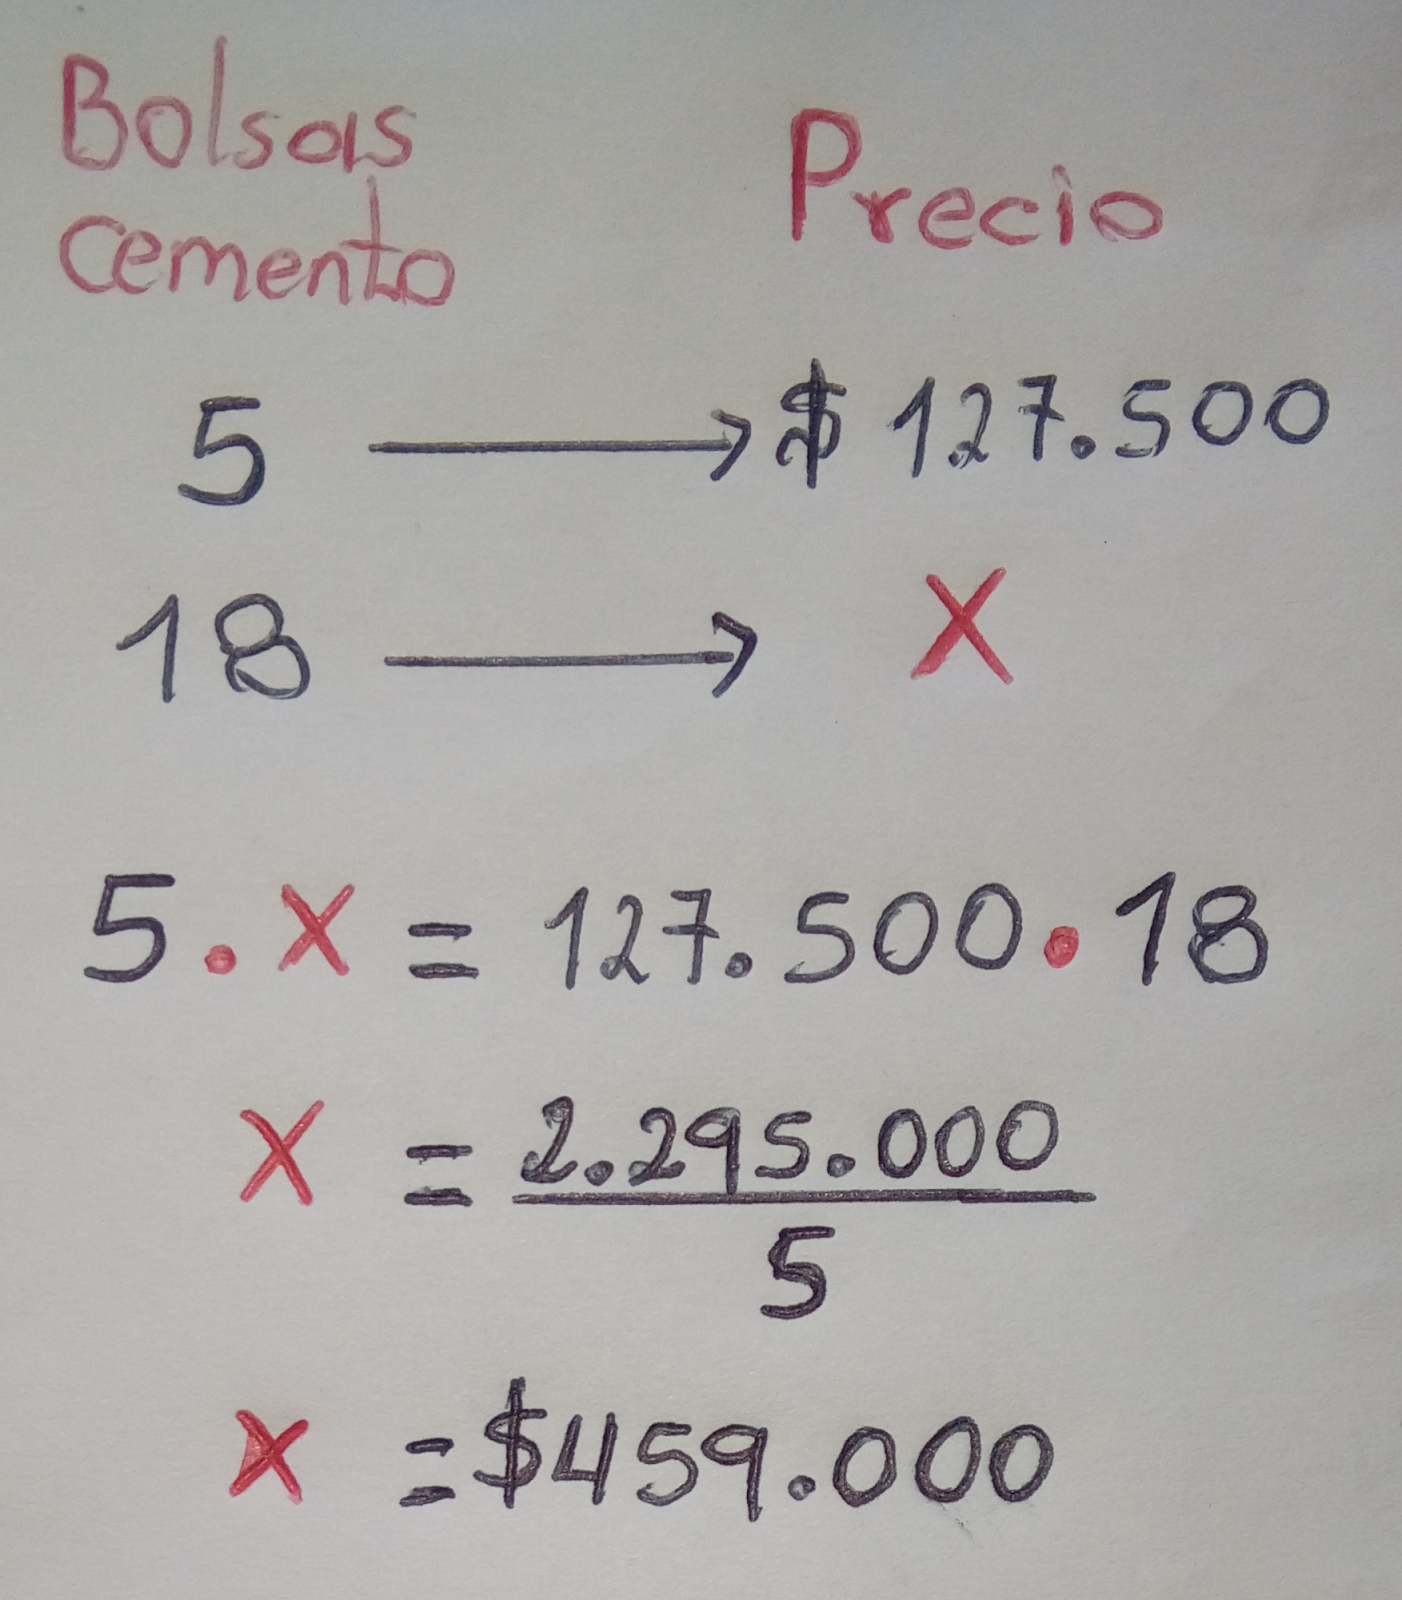 Bolsas cemento Precio
5 → $ 127.500
18 → X
5 . X = 127.500 . 18
X = 2.295.000
5
X = $459.000